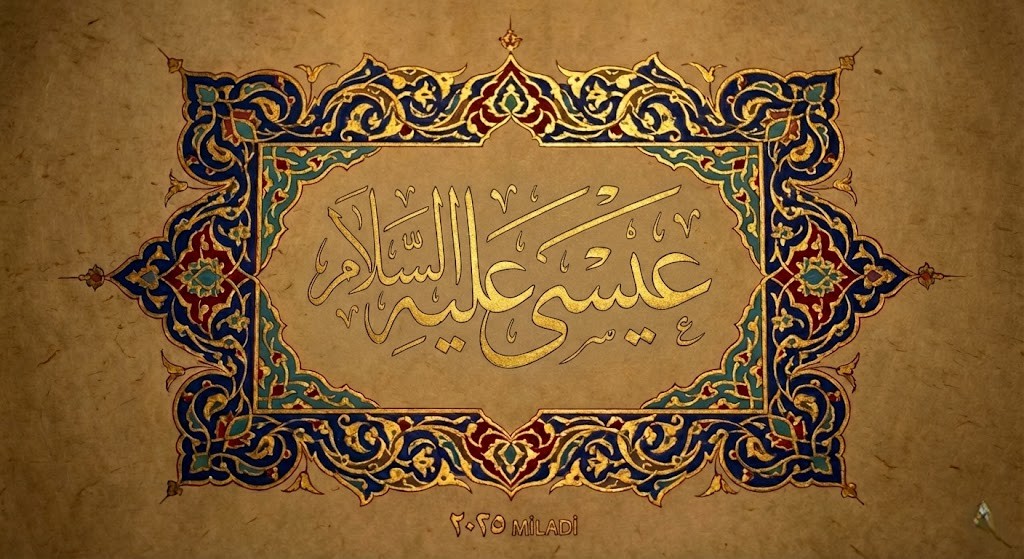 عِيسَى عَلَيْهِ السَّلَام
٢٠٢٥ MİLADİ